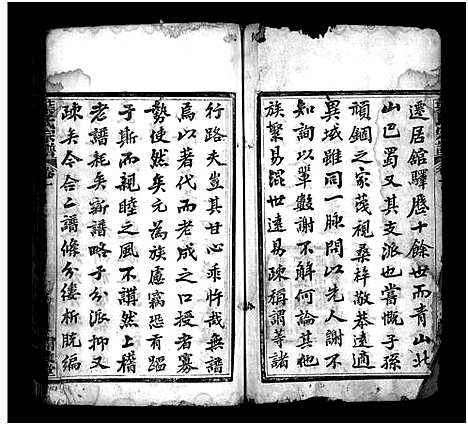 遷居館驛歷十餘世而青山北
山巴蜀又其支派也嘗慨子孫
頑錮之家蔑視桑梓敬恭遠適
異域雖同一脉問以先人謝不
知詢以單數謝不解何論其他
族繁易混世遠易疎稱謂等諸
行路夫豈其甘心乖忤哉無譜
焉以著代而老成之口授者寡
勢使然矣元為族慮竊恐有蹈
于斯而親睦之風不講然上稽
老譜耗矣新譜略子分派抑又
疎矣今合二譜條分縷析脫編